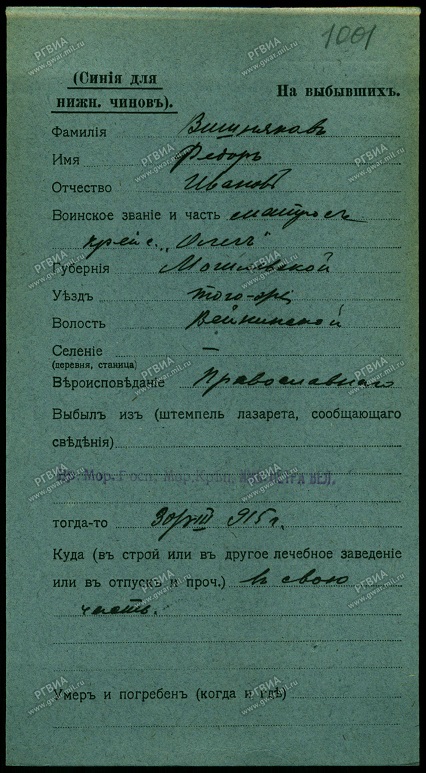 1001
(Синія для
нижн. чиновъ).
На выбывшихъ.
Фамилія Вишняковъ
Имя Федоръ
Отчество Ивановъ
Воинское званіе и часть матрос
крейс. „Олегъ"
Губернія Могилевской
Уѣздъ того-же
Волость Вейнинской
Селеніе —
(деревня, станица)
Вѣроисповѣданіе Православнаго
Выбылъ изъ (штемпель лазарета, сообщающаго
свѣдѣнія)
Мор. Госп. Мор. Крѣп. ПЕТРА ВЕЛ.
тогда-то 30 915 г.
Куда (въ строй или въ другое лечебное заведеніе
или въ отпускъ и проч.) въ свою
часть.
Умеръ и погребенъ (когда и гдѣ)
РГВИА
www.gwar.mil.ru